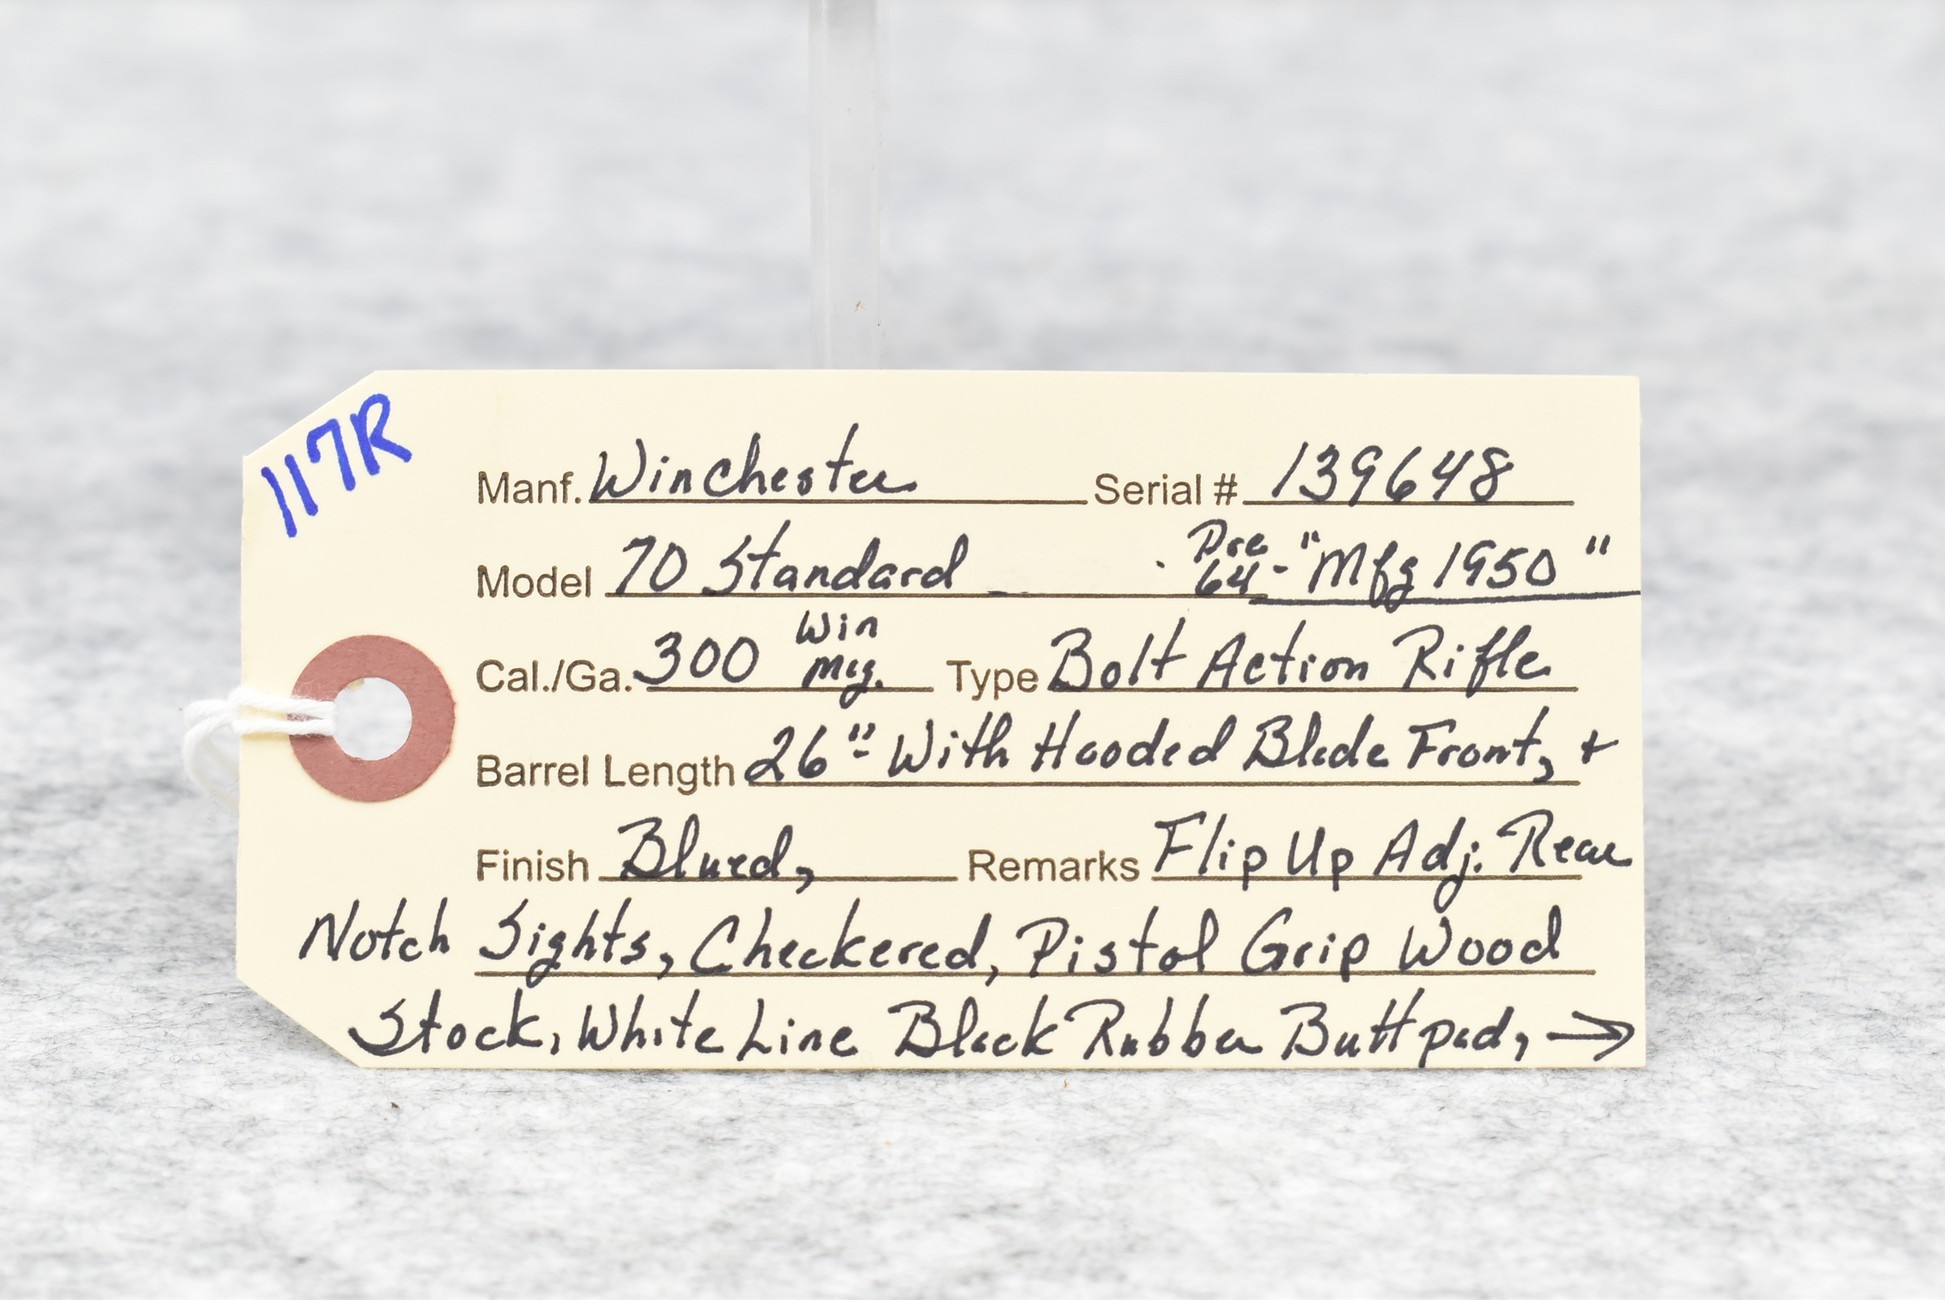 117R
Manf. Winchester Serial # 139648
Model 70 Standard Pre 64 - "Mfg 1950"
Cal./Ga. 300 Win Mag. Type Bolt Action Rifle
Barrel Length 26" - With Hooded Blade Front, +
Finish Blued, Remarks Flip Up Adj. Rear
Notch Sights, Checkered, Pistol Grip Wood
Stock, White Line Black Rubber Buttpad, →